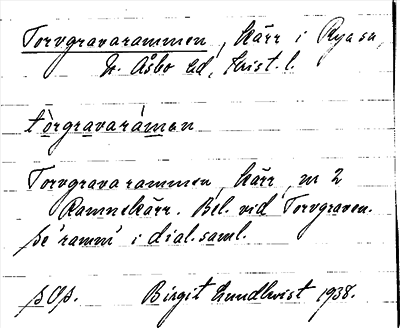 Torvgravarammen, kärr i Rya sn,
N. Åsbo hd, Krist. l.
tòrgravarámen
Torvgravarammen, kärr, nr 2
Ramnekärr. Bel. vid Torvgraven.
Se 'ramm' i dial.saml.
Birgit Lundkvist 1938.